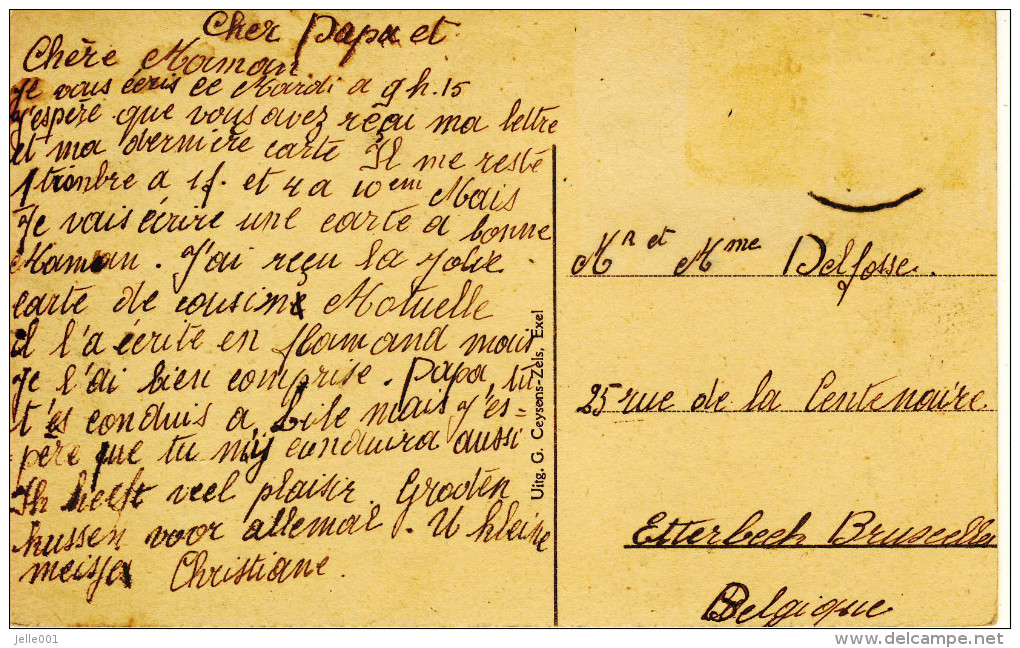 Cher Papa et
Chère Maman
Je vous écris ce Mardi a 9 h.15
j'espère que vous avez réçu ma lettre
et ma dernière carte Il me reste
1 trimbre a 1f. et 4 a 10 em Mais
Je vais écrire une carte a bonne
Maman. J'ai reçu la jolie
carte de cousin Motuelle
il l'a écrite en flamand mais
je l'ai bien comprise. Papa, tu
t'es conduis a Lile mais j'es=
=père que tu m'y conduira aussi
Ik heeft veel plaisir. Grooten
kussen voor allemal. U kleine
meisje Christiane.
Mr et Mme Delfosse.
25 rue de la Centenaire
Etterbeek Bruxelles
Belgique
Uitg. G. Ceysens-Zels, Exel
jelle001
www.delcampe.net